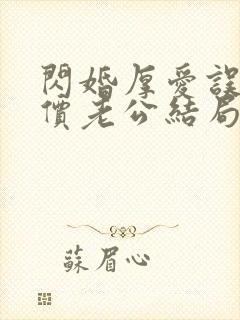 閃婚厚愛誤
價老公結局
蘇眉心